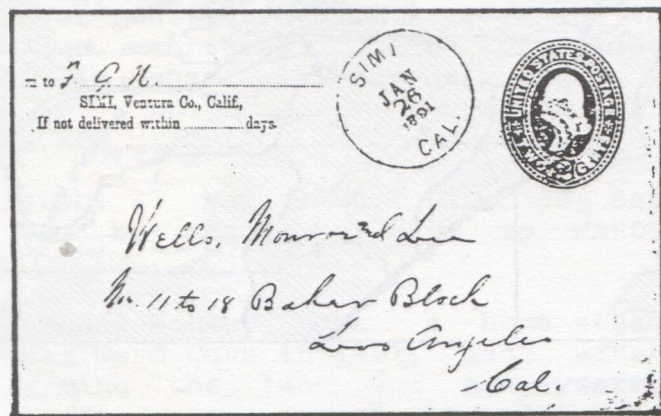 n to F. C. N.
SIMI, Ventura Co., Calif,
If not delivered within days.
SIMI
JAN
26
1891
CAL.
UNITED STATES POSTAGE
TWO CENTS
Wells, Monroe & Lee
No. 11 to 18 Baker Block
Los Angeles
Cal.